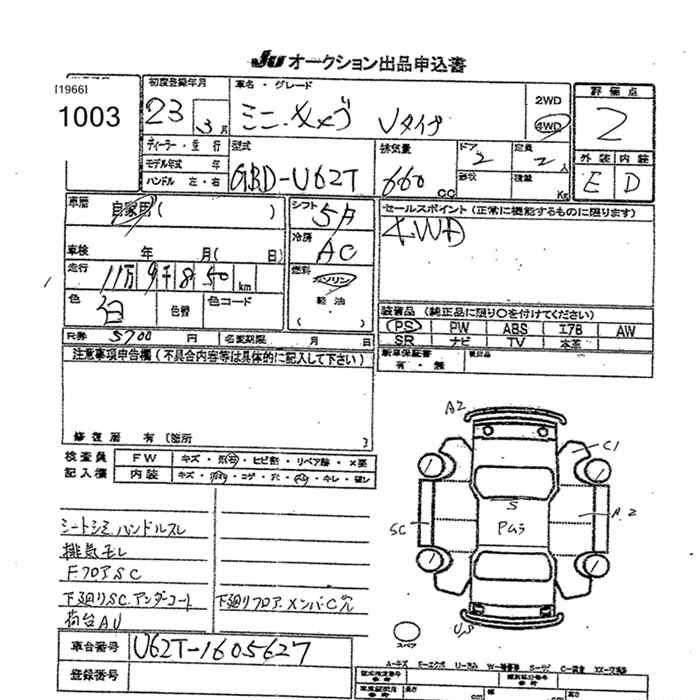 JU オークション出品申込書
[1966]
1003
初度登録年月
23 3月
車名・グレード
ミニキャブ Vタイプ
2WD
4WD
評価点
2
外装 内装
E D
ディーラー・並 行
モデル年式 年
ハンドル 左・右
型式
GBD-U62T
排気量
660 CC
ドア
2
定員
2 人
形状
積載
Kg
車歴
自家用 ( )
シフト
5F
セールスポイント (正常に機能するものに限ります)
4WD
車検 年 月( 日)
冷房
AC
走行
11万 9千 8 50 km
燃料
ガソリン
軽油
( )
色
白
色替
色コード
装備品 (純正品に限り○を付けてください)
PS PW ABS エアB AW
SR ナビ TV 本革
R券 5700 円
名変期限 月 日
新車保証書
有・無
注意事項申告欄 (不具合内容等は具体的に記入して下さい)
修復歴 有 [箇所 ]
検査員
記入欄
FW
キズ・飛石・ヒビ割・リペア跡・×要
内装
シートシミ ハンドルスレ
排気モレ
FフロアSC
下廻りSC.アンダーコート
下廻りフロア.メンバーC穴
荷台AU
車台番号
U62T-1605627
登録番号
A2
C1
A2
S
Pムラ
SC
US
スペア